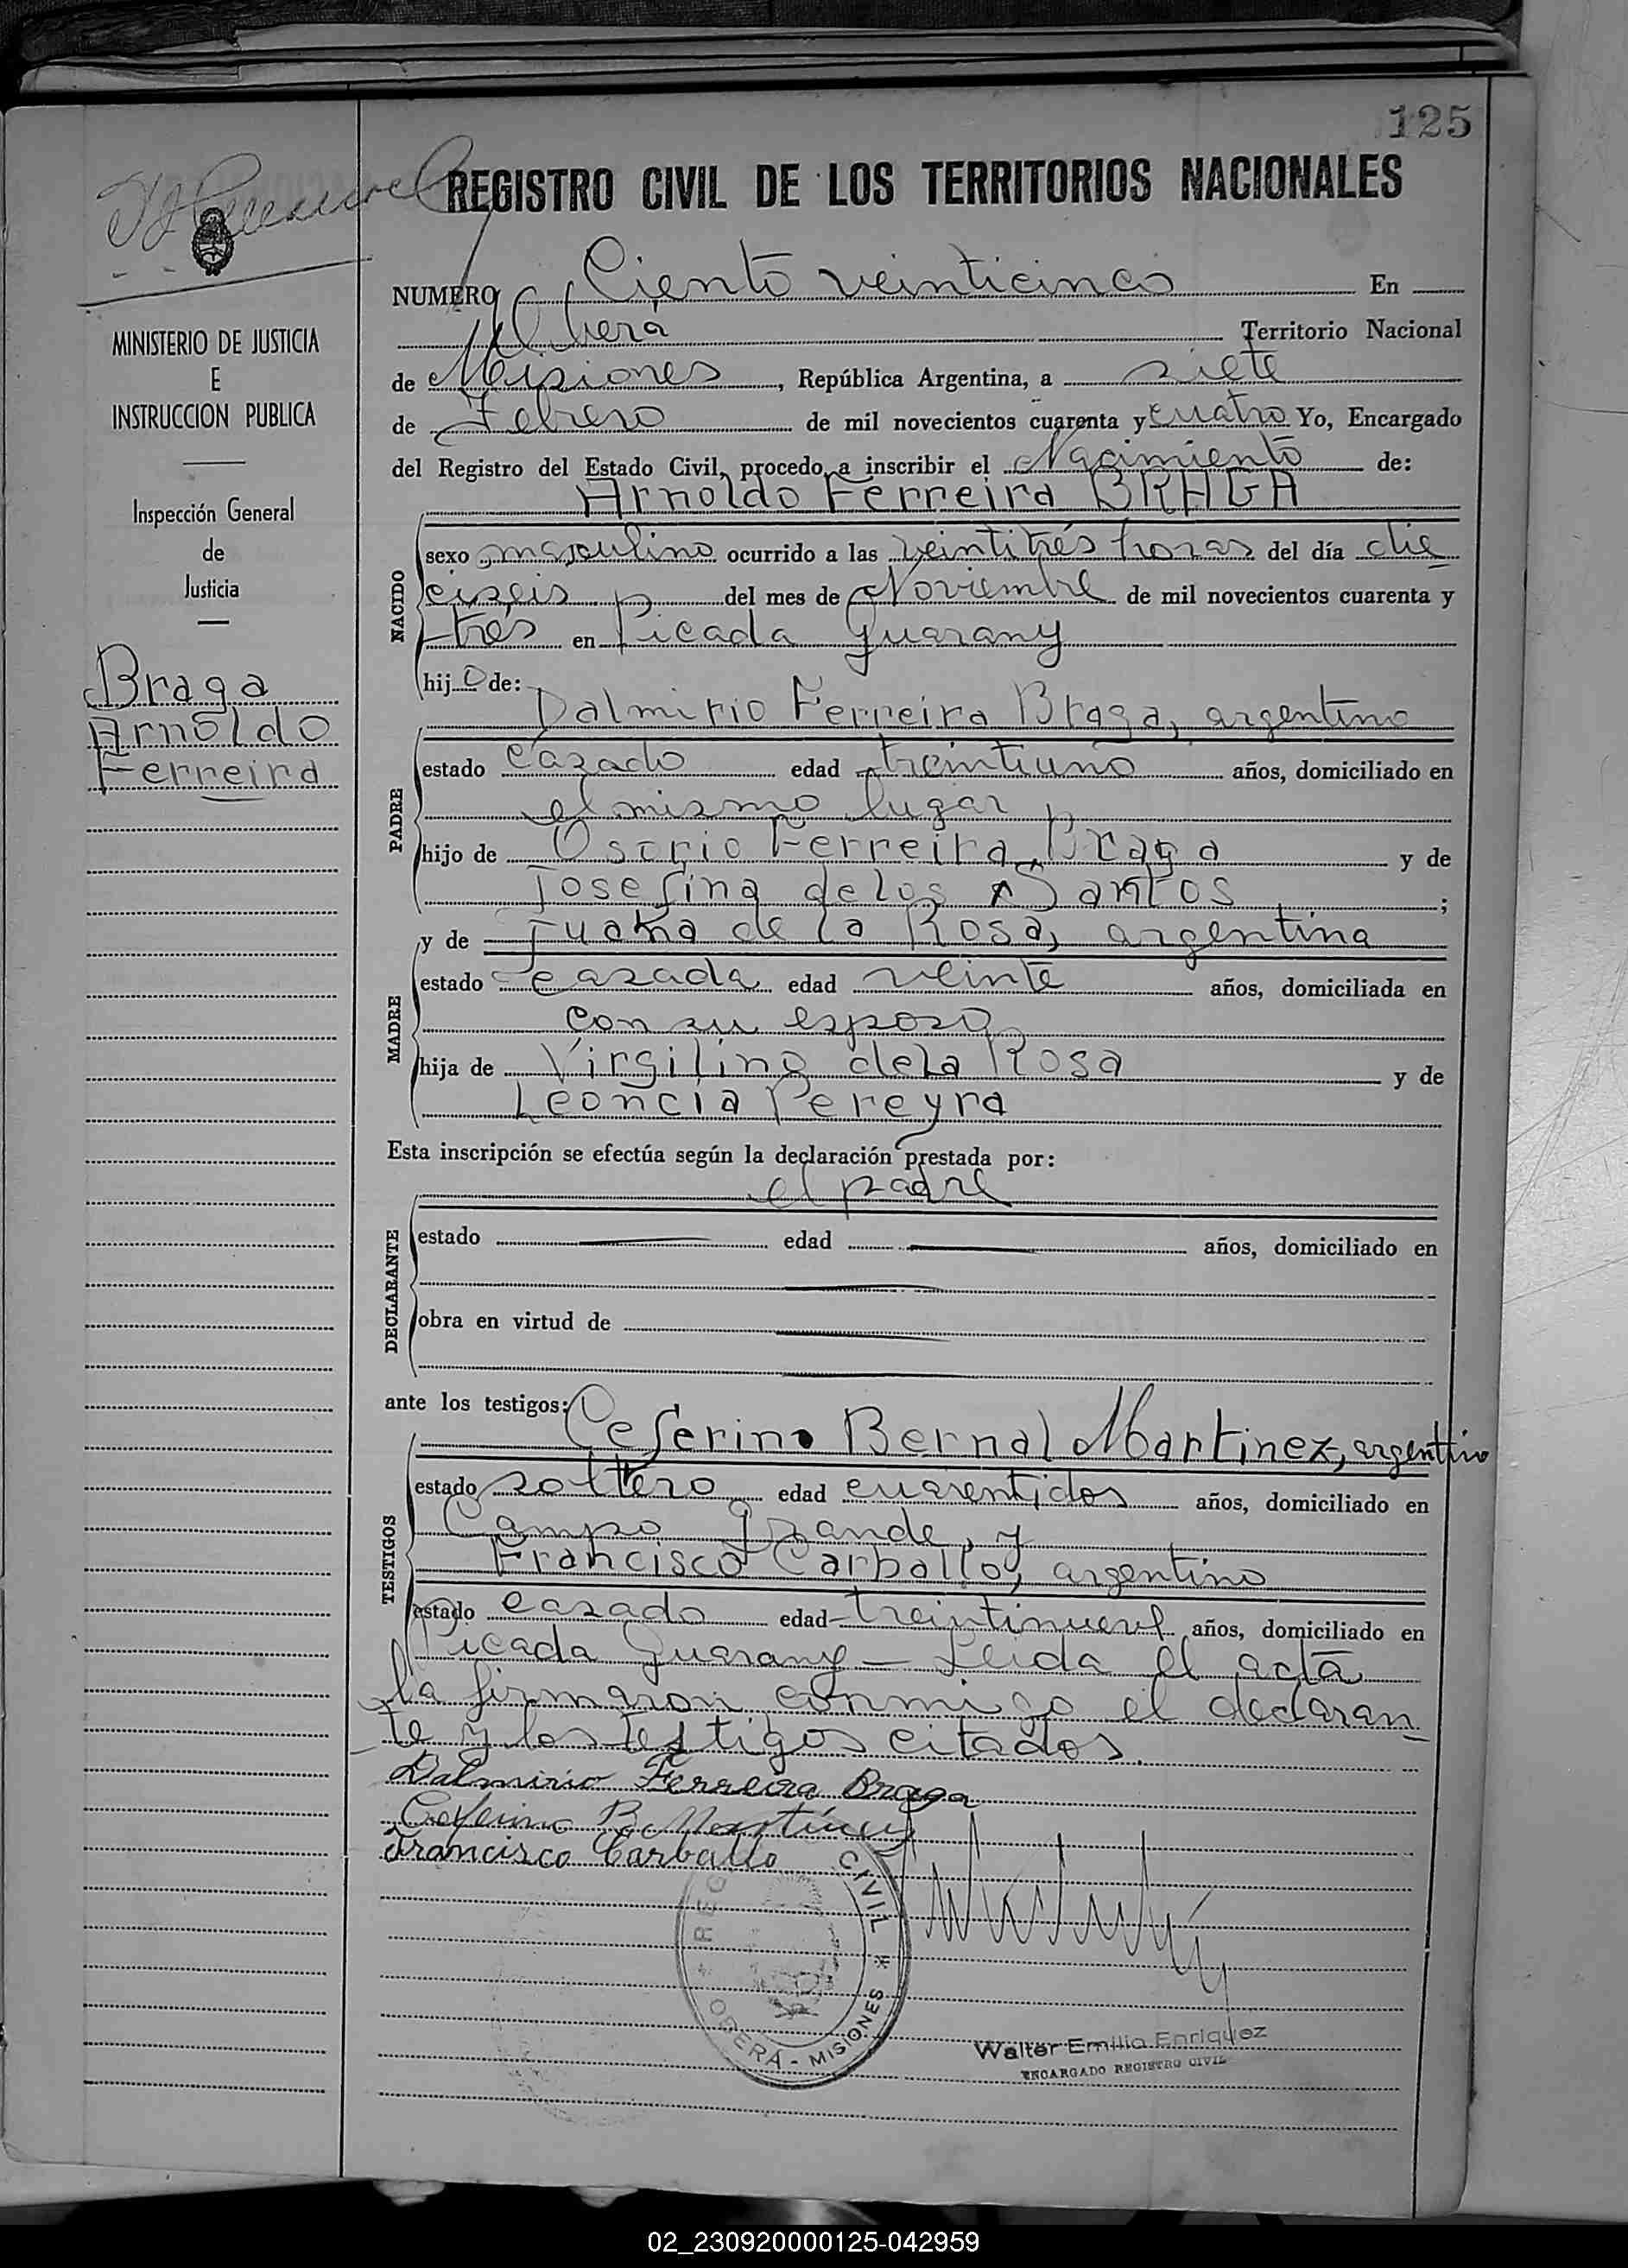 125
REGISTRO CIVIL DE LOS TERRITORIOS NACIONALES
NUMERO Ciento veinticinco En
Oberá Territorio Nacional
de Misiones, República Argentina, a siete
de Febrero de mil novecientos cuarenta y cuatro Yo, Encargado
del Registro del Estado Civil, procedo a inscribir el Nacimiento de:
Arnoldo Ferreira BRAGA
NACIDO
sexo masculino ocurrido a las veintitrés horas del día die
ciseis del mes de Noviembre de mil novecientos cuarenta y
trés en Picada Guarany
hijo de:
PADRE
Dalmirio Ferreira Braga, argentino
estado casado edad treintiuno años, domiciliado en
el mismo lugar
hijo de Osorio Ferreira Braga y de
Josefina de los Santos ;
MADRE
y de Juana de la Rosa, argentina
estado casada edad veinte años, domiciliada en
con su esposo
hija de Virgilino dela Rosa y de
Leoncia Pereyra
Esta inscripción se efectúa según la declaración prestada por:
DECLARANTE
el padre
estado edad años, domiciliado en
obra en virtud de
ante los testigos:
TESTIGOS
Ceferino Bernal Martinez, argentino
estado soltero edad cuarentidos años, domiciliado en
Campo Grande, y
Francisco Carballo, argentino
estado casado edad treintinueve años, domiciliado en
Picada Guarany — Leida el acta
la firmaron conmigo el declaran
te y los testigos citados.
Dalmirio Ferreira Braga
Ceferino B. Martínez
Francisco Carballo
REG CIVIL
OBERÁ - MISIONES
Walter Emilio Enriquez
ENCARGADO REGISTRO CIVIL
MINISTERIO DE JUSTICIA
E
INSTRUCCION PUBLICA
Inspección General
de
Justicia
Braga
Arnoldo
Ferreira
02_230920000125-042959